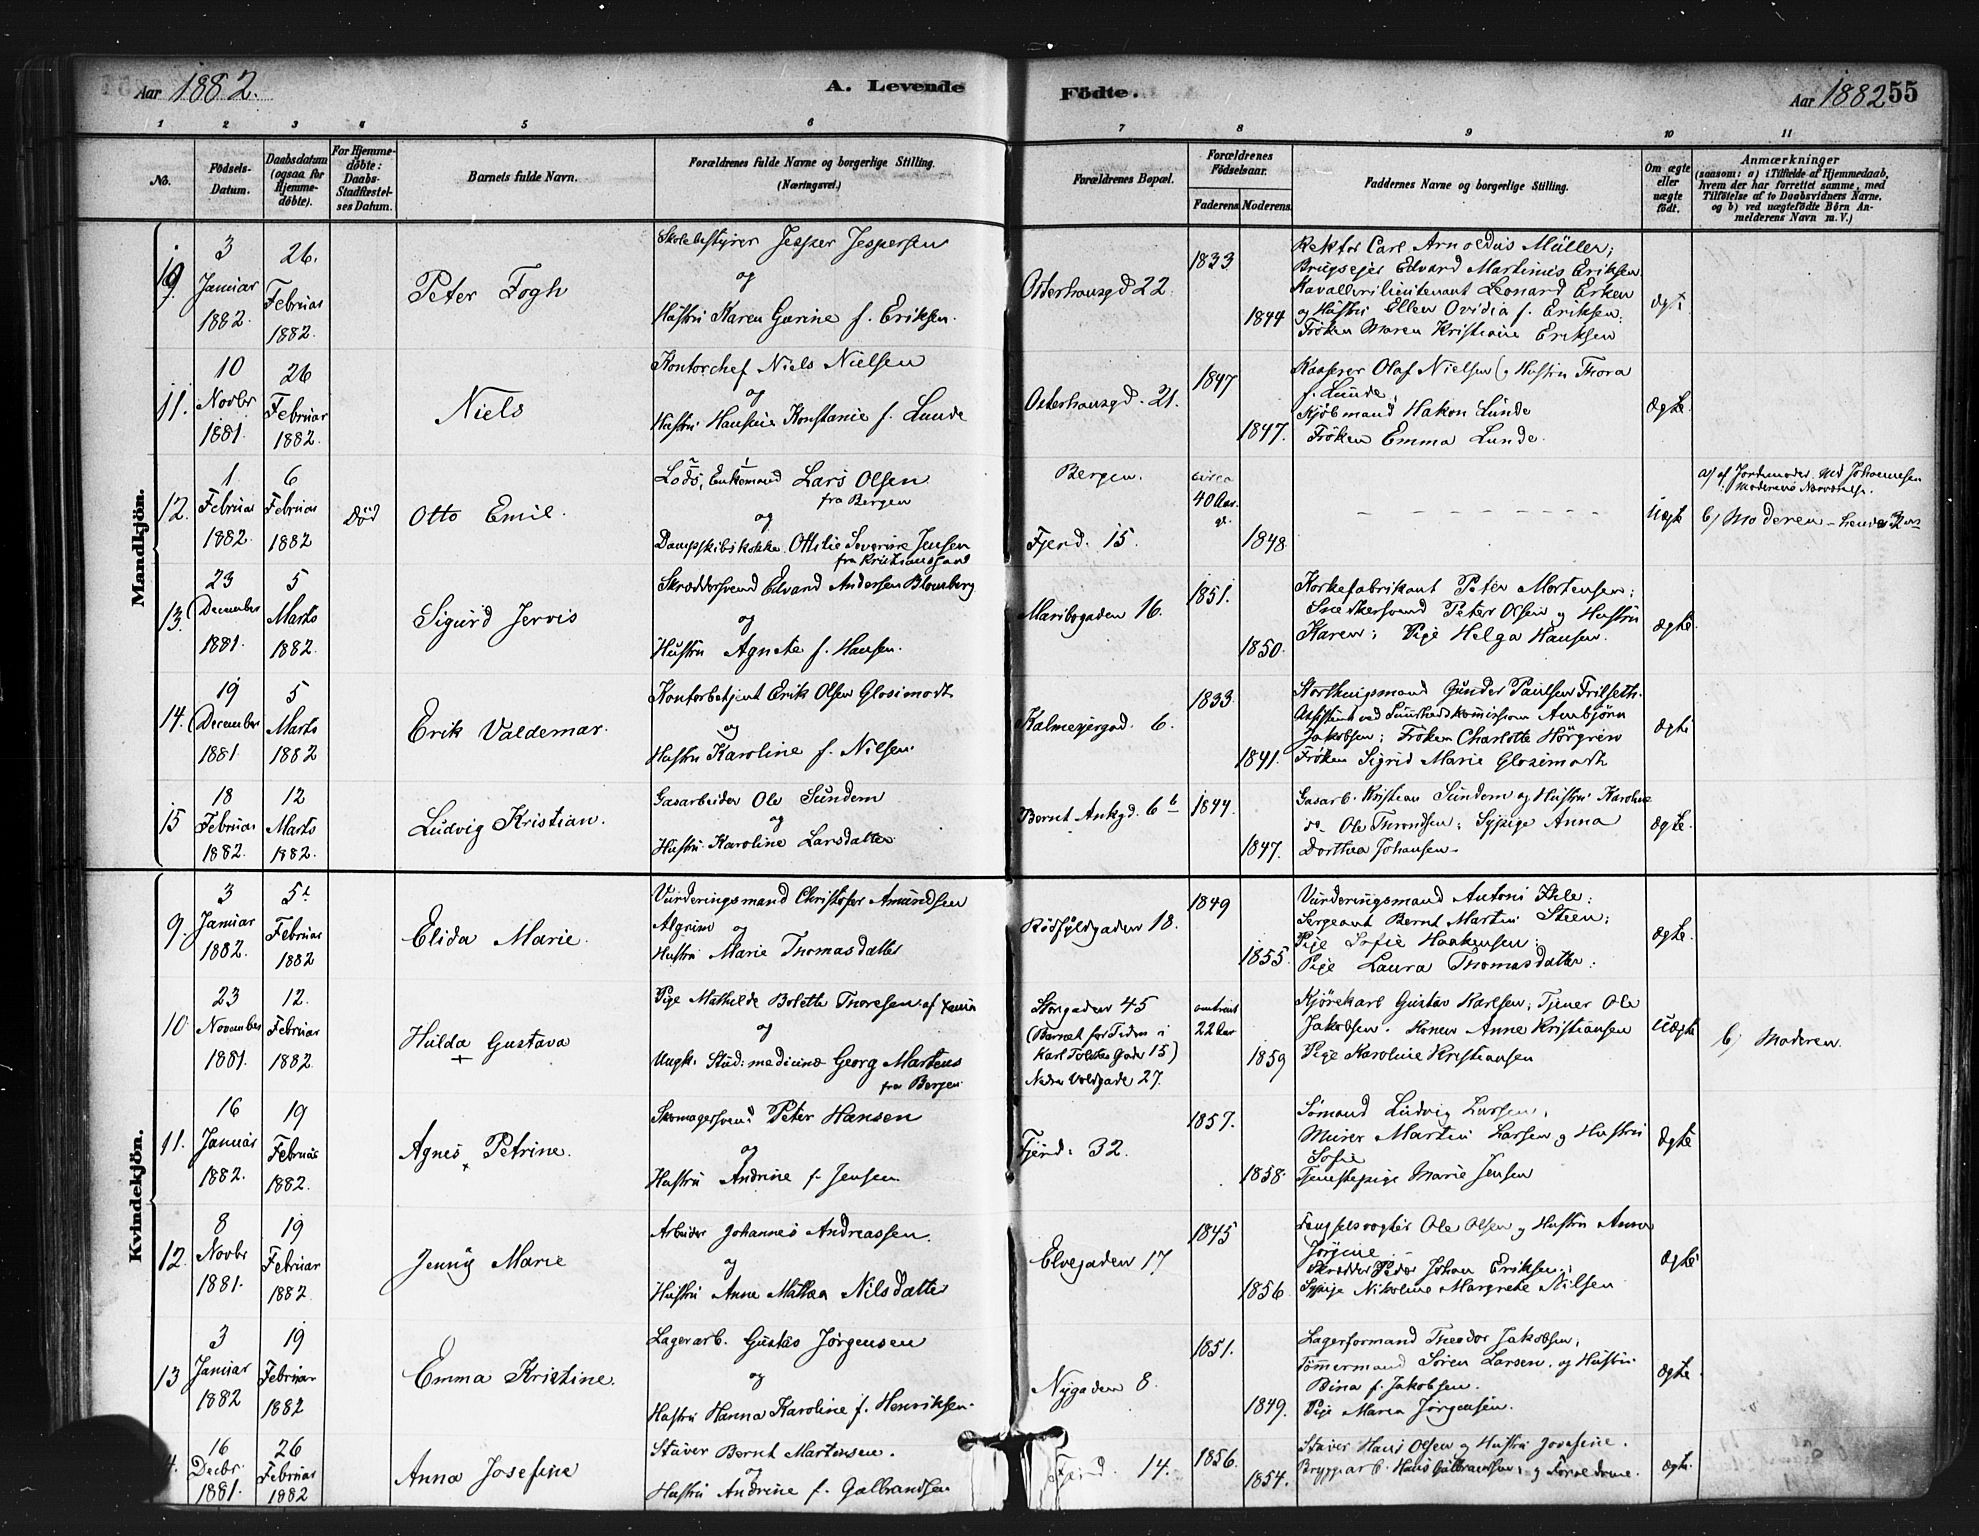 Aar 1882.
A. Levende Födte.
Aar 1882 55
1 2 3 4 5 6 7 8 9 10 11
No.
Födsels-Datum.
Daabsdatum (ogsaa for Hjemmedöbte).
For Hjemmedöbte: Daabs-Stadfæstelses Datum.
Barnets fulde Navn.
Forældrenes fulde Navne og borgerlige Stilling.
(Næringsvei.)
Forældrenes Bopæl.
Forældrenes Födselsaar.
Faderens Moderens.
Faddernes Navne og borgerlige Stilling.
Om ægte eller uægte födt.
Anmærkninger
(saasom: a) i Tilfælde af Hjemmedaab,
hvem der har forrettet samme, med
Tilföielse af to Daabsvidners Navne,
og b) ved uægtefödte Börn Anmelderens Navn m. V.)
Mandkjön.
3 Januar 1882.
26. Februar 1882.
Peter Fogh
Skolebestyrer Jesper Jespersen
og
Hustru Karen Gurine f. Eriksen.
Osterhausgd 22.
1833
1844
Rektor Carl Arnoldus Müller;
Brugseier Edvard Martinius Eriksen
Kavallerilieutenant Leonard Erken
og Hustru Ellen Ovidia f. Eriksen;
Fröken Maren Kristiane Eriksen
ægte
11.
10 Novbr 1881.
26 Februar 1882.
Niels
Kontorchef Niels Nielsen
og
Hustru Hansine Konstanse f. Lunde
Osterhausgd. 21.
1847
1847.
Kasserer Olaf Nielsen og Hustru Thora
f. Lunde,
Kjöbmand Hakon Lunde
Fröken Emma Lunde.
ægte.
12.
1 Februar 1882.
6 Februar 1882
Död
Otto Emil.
Lods, Enkemand Lars Olsen
fra Bergen
og
Dampskibskokke Ottilie Severine Jensen
fra Kristianssand
Bergen.
Fjerd. 15.
circa
40 Aar
1848
Uægte
a) af Jordemoder
b) Moderen
13.
23 December 1881.
5 Marts 1882.
Sigurd Jervis
Skræddersvend Edvard Andersen Blomberg
og
Hustru Agnete f. Hansen.
Maribogaden 16.
1851.
1850.
Korkefabrikant Peter Mortensen;
Snedkersvend Peter Olsen og Hustru
Karen; Pige Helga Hansen.
ægte
14.
19 December 1881
5 Marts 1882
Erik Valdemar.
Kontorbetjent Erik Olsen Glosimodt
og
Hustru Karoline f. Nilsen.
Kalmeyergad. 6.
1833.
1841.
Storthingsmand Gunder Paulsen Frilseth.
Assistent ved Sundhedskommissionen
Jakobsen; Fröken Charlotte Hörgren
Fröken Sigrid Marie Glosimodt
ægte
15
18 Februar 1882.
12 Marts 1882.
Ludvig Kristian.
Gasarbeider Ole Sundem
og
Hustru Karoline Larsdatter
Bernt Ankgd. 6 b
1844.
1847.
Gasarb. Kristian Sundem og Hustru Karoline
do. Ole Throndsen; Sypige Anna
Dorthea Johansen.
ægte.
Kvindekjön.
9.
3 Januar 1882.
5te Februar 1882
Elida Marie.
Vurderingsmand Christofer Amundsen
Algrim og
Hustru Marie Thomasdatter
Rödfyldgaden 18.
1849
1855.
Vurderingsmand Antoni Ihle;
Sergeant Bernt Martin Steen;
Pige Sofie Haakensen;
Pige Laura Thomasdatter;
ægte.
10
23 November 1881.
12. Februar 1882.
Hulda Gustava
Pige Mathilde Bolette Thoresen
og
Ungk. Stud: medicinæ Georg Martens
fra Bergen
Storgaden 45
(Barnet for Tiden i
Karl Gade 15)
Nedre Voldgade 27.
omtrent
22 Aar
1859
Kjörekarl Gustav Karlsen; Tjener Ole
Jakobsen. Konen Anne Kristiansen
Pige Karoline Kristiansen
Uægte
b) Moderen.
11.
16 Januar 1882.
19 Februar 1882.
Agnes Petrine.
Skomagersvend Peter Hansen
og
Hustru Andrine f. Jensen
Fjerd. 32.
1857.
1858.
Sömand Ludvig Larsen;
Murer Martin Larsen og Hustru
Sofie
Tjenestepige Marie Jensen
ægte
12.
8 Novbr 1881.
19 Februar 1882.
Jenny Marie
Arbeider Johannes Andreassen.
og
Hustru Anne Mathea Nilsdatter
Elvegaden 17
1845
1856.
Fængselsvogter Ole Olsen og Hustru Anna
Jörgine
Skrædder Peder Johan Eriksen;
Sypige Nikoline Margrethe Nilsen
ægte
13
3 Januar 1882
19 Februar 1882
Emma Kristine.
Lagerarb. Gustav Jörgensen
og
Hustru Hanna Karoline f. Henriksen.
Nygaden 8.
1851.
1849.
Lagerformand Theodor Jakobsen;
Tömmermand Sören Larsen og Hustru
Bina f. Jakobsen.
Pige Maren Jörgensen.
ægte
4.
16 Decbr 1881.
26 Februar 1882
Anna Josefine
Stuver Bernt Martinsen.
og
Hustru Andrine f. Gulbrandsen
Fjerd. 14.
1856.
1854.
Stuver Hans Olsen og Hustru Josefine.
Bryggearb. Hans Gulbrandsen og Forældrene.
ægte.